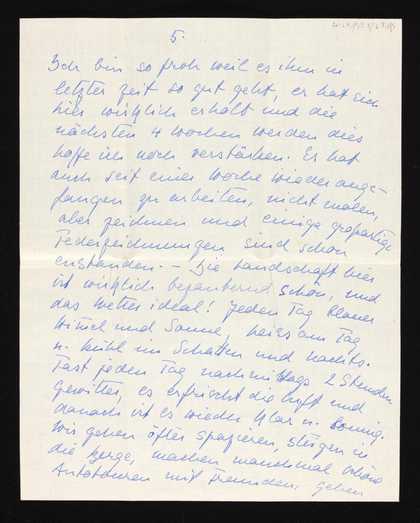 5.
Ich bin so froh weil es ihm in
letzter Zeit so gut geht, er hat sich
hier wirklich erholt und die
nächsten 4 Wochen werden dies
hoffe ich noch verstärken. Er hat
auch seit einer Woche wieder ange-
fangen zu arbeiten, nicht malen,
aber zeichnen und einige großartige
Federzeichnungen sind schon
enstanden. – Die Landschaft hier
ist wirklich bezaubernd schön, und
das Wetter ideal! Jeden Tag blauer
Himmel und Sonne, heiss am Tag
u. kühl im Schatten und nachts.
Fast jeden Tag nachmittags 2 Stunden
Gewitter, es erfrischt die Luft und
danach ist es wieder klar u. sonnig.
Wir gehen öfter spazieren, steigen in
die Berge, machen manchmal schöne
Autotouren mit Freunden, gehen